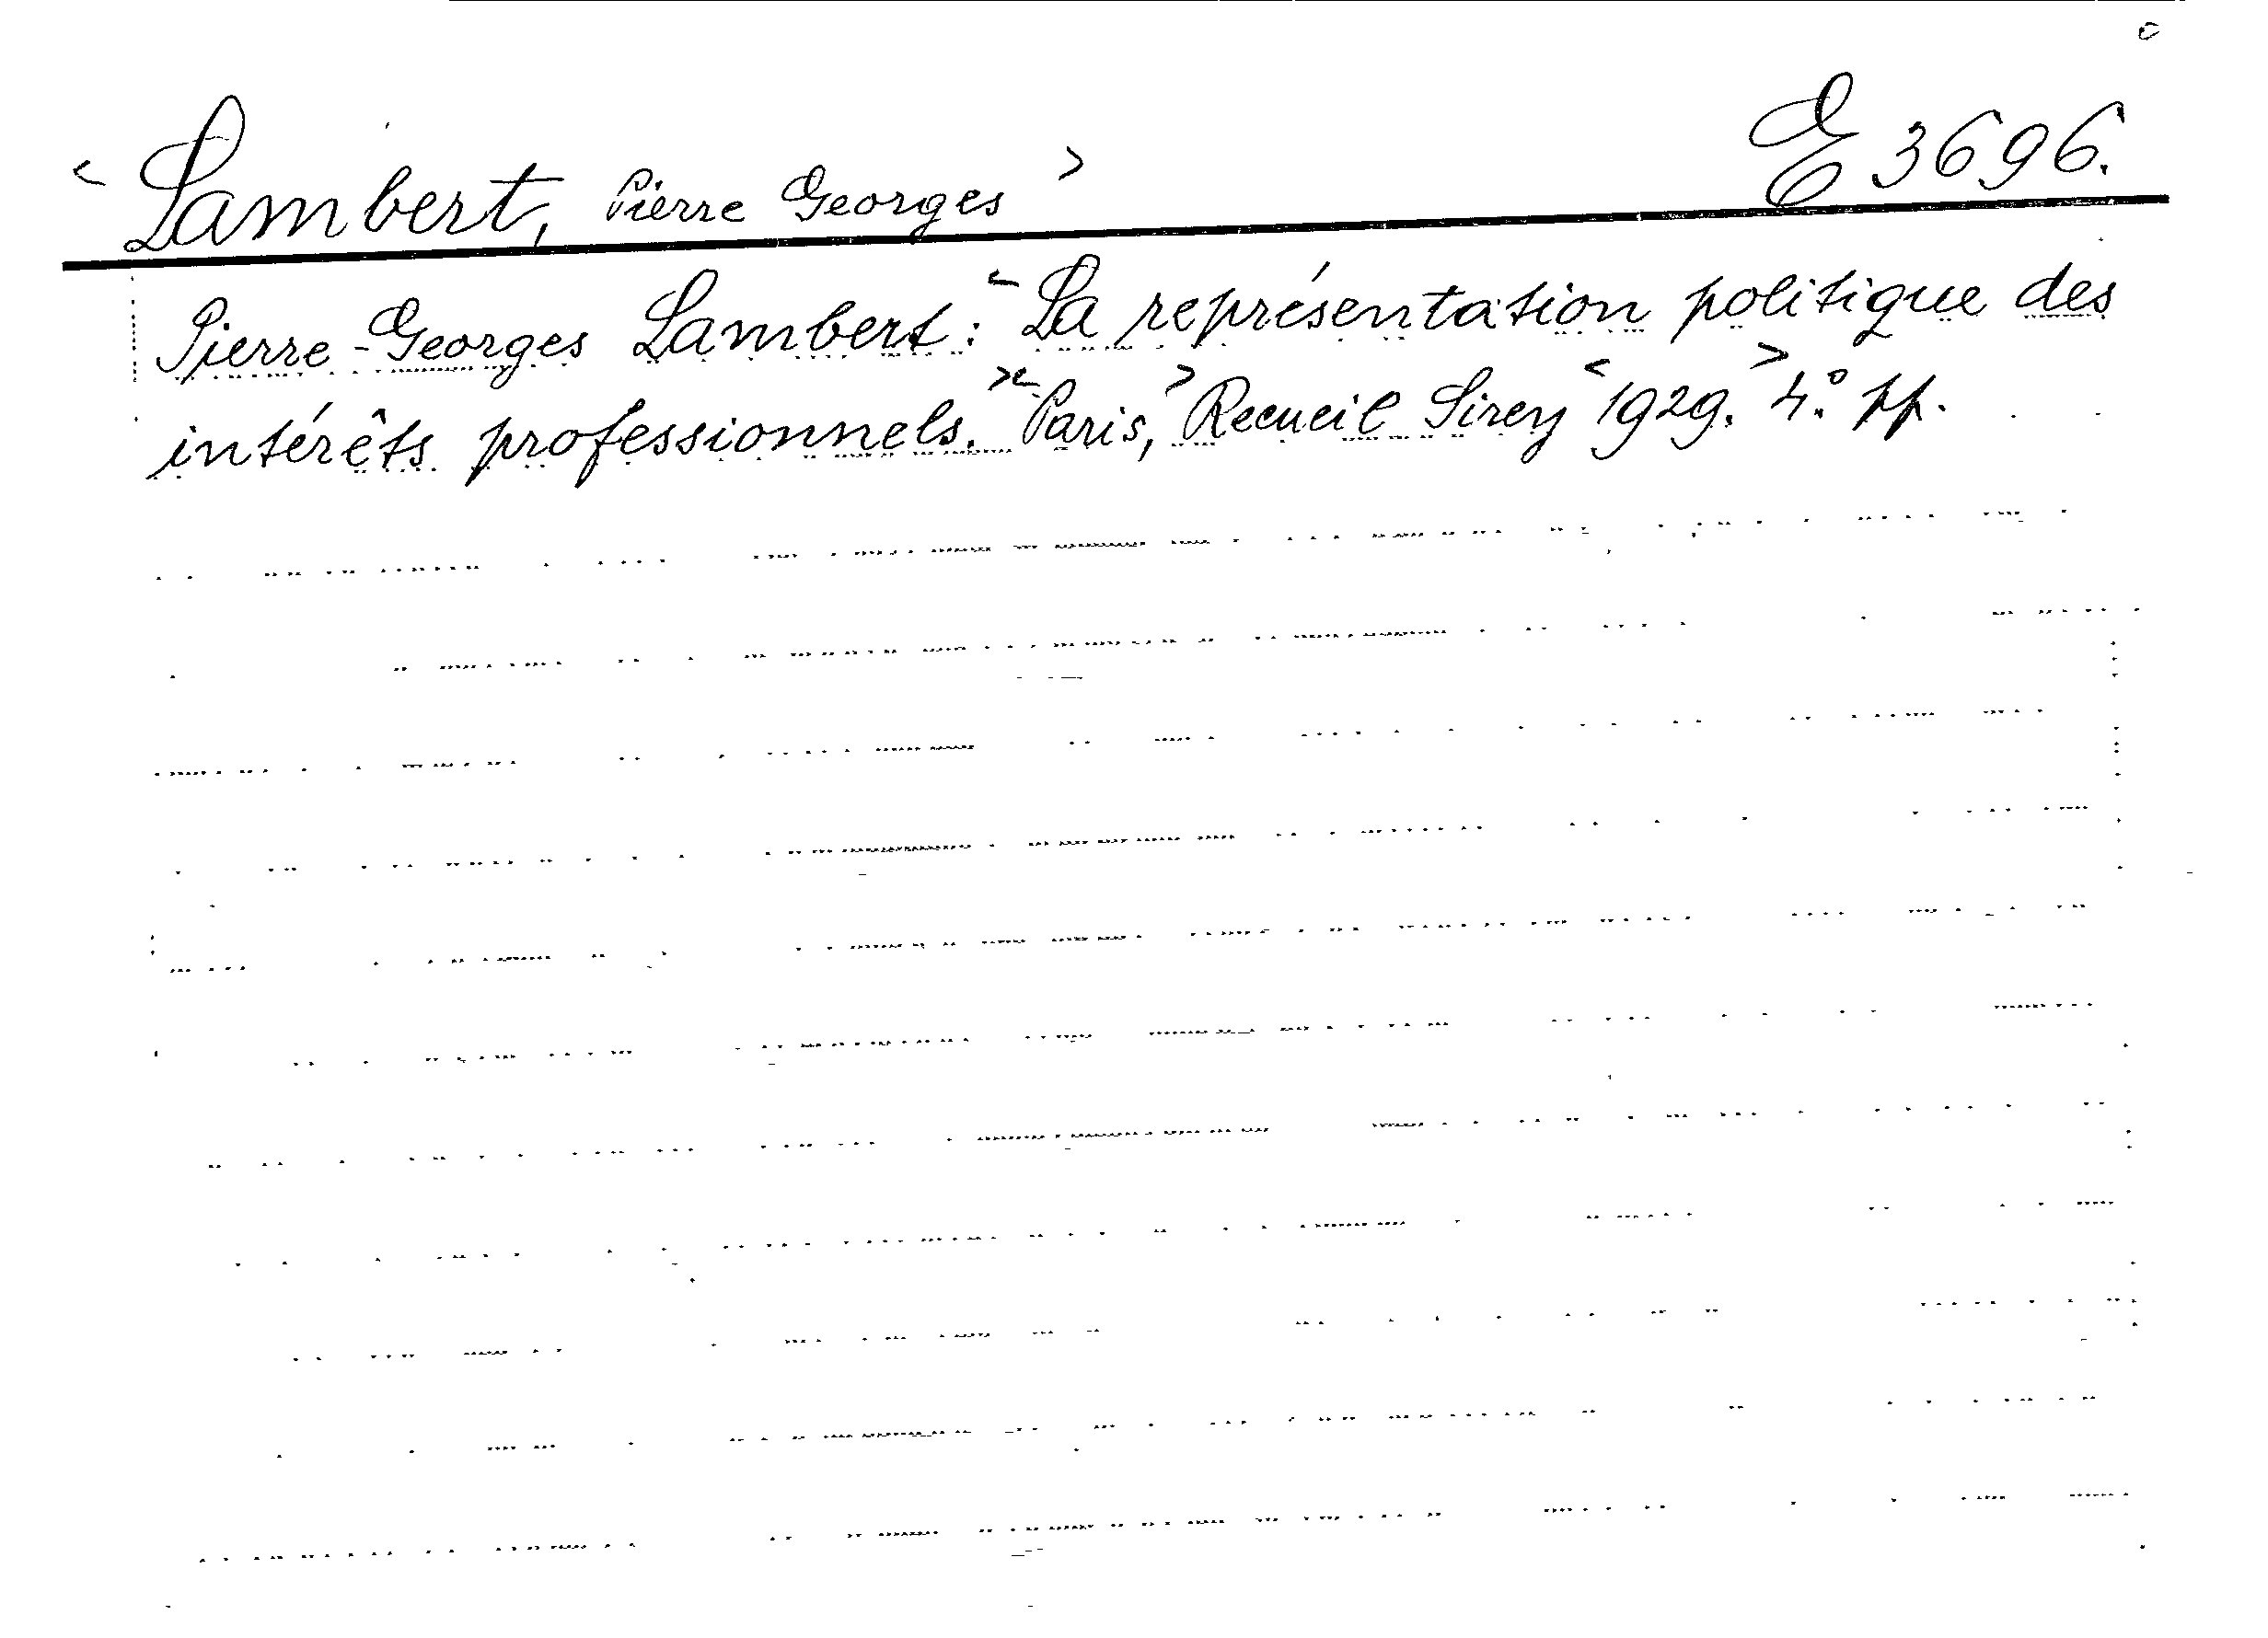 <Lambert, Pierre Georges> E 3696.
Pierre-Georges Lambert: <La représentation politique des
intérêts professionnels.> <Paris,> Recueil Sirey <1929.> 4.° pp.